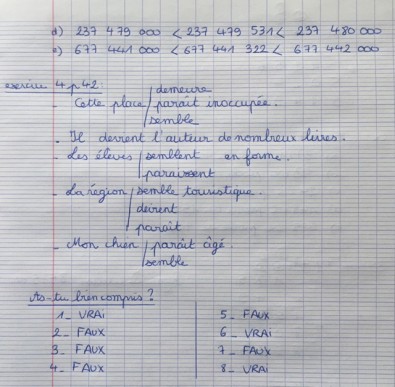 d) 237 479 000 < 237 479 531 < 237 480 000
e) 677 441 000 < 677 441 322 < 677 442 000
exercice 4 p 42 :
demeure
- Cette place paraît inoccupée.
semble
- Il devient l'auteur de nombreux livres.
- Les élèves semblent en forme.
paraissent
- La région semble touristique.
devient
paraît
- Mon chien paraît âgé.
semble
As-tu bien compris ?
1_ VRAi
2_ FAUX
3_ FAUX
4_ FAUX
5_ FAUX
6_ VRAi
7_ FAUX
8_ VRAi